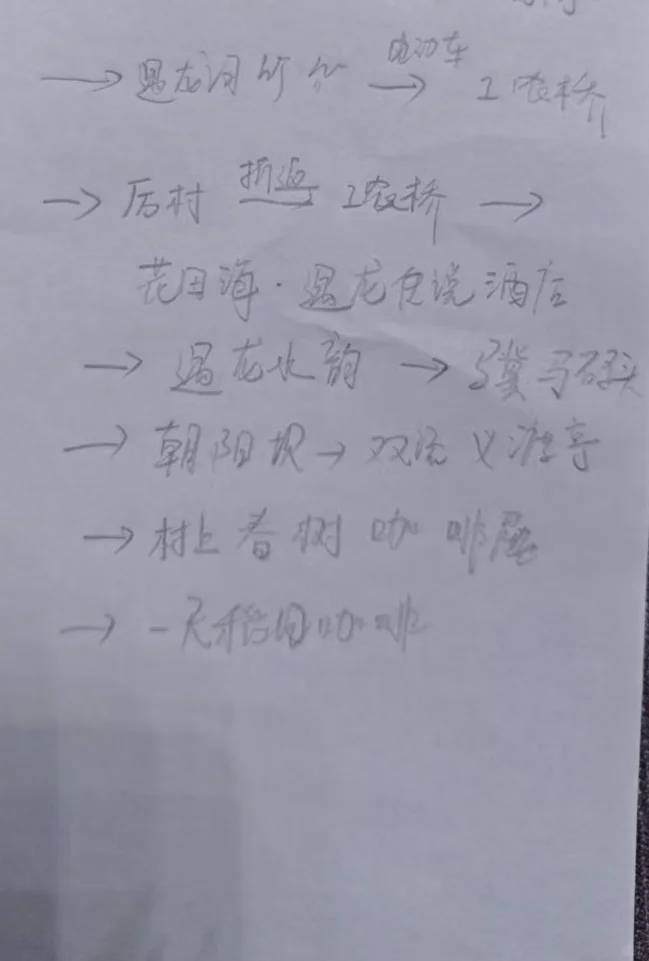 电动车
→ 遇龙河竹 → 工农桥
→ 厄村 折返 → 工农桥 →
花田海·遇龙 酒店
→ 遇龙水韵 → 骥马码头
→ 朝阳坝 → 双流 亭
→ 村上春树咖啡屋
→ 一尺稻田咖啡